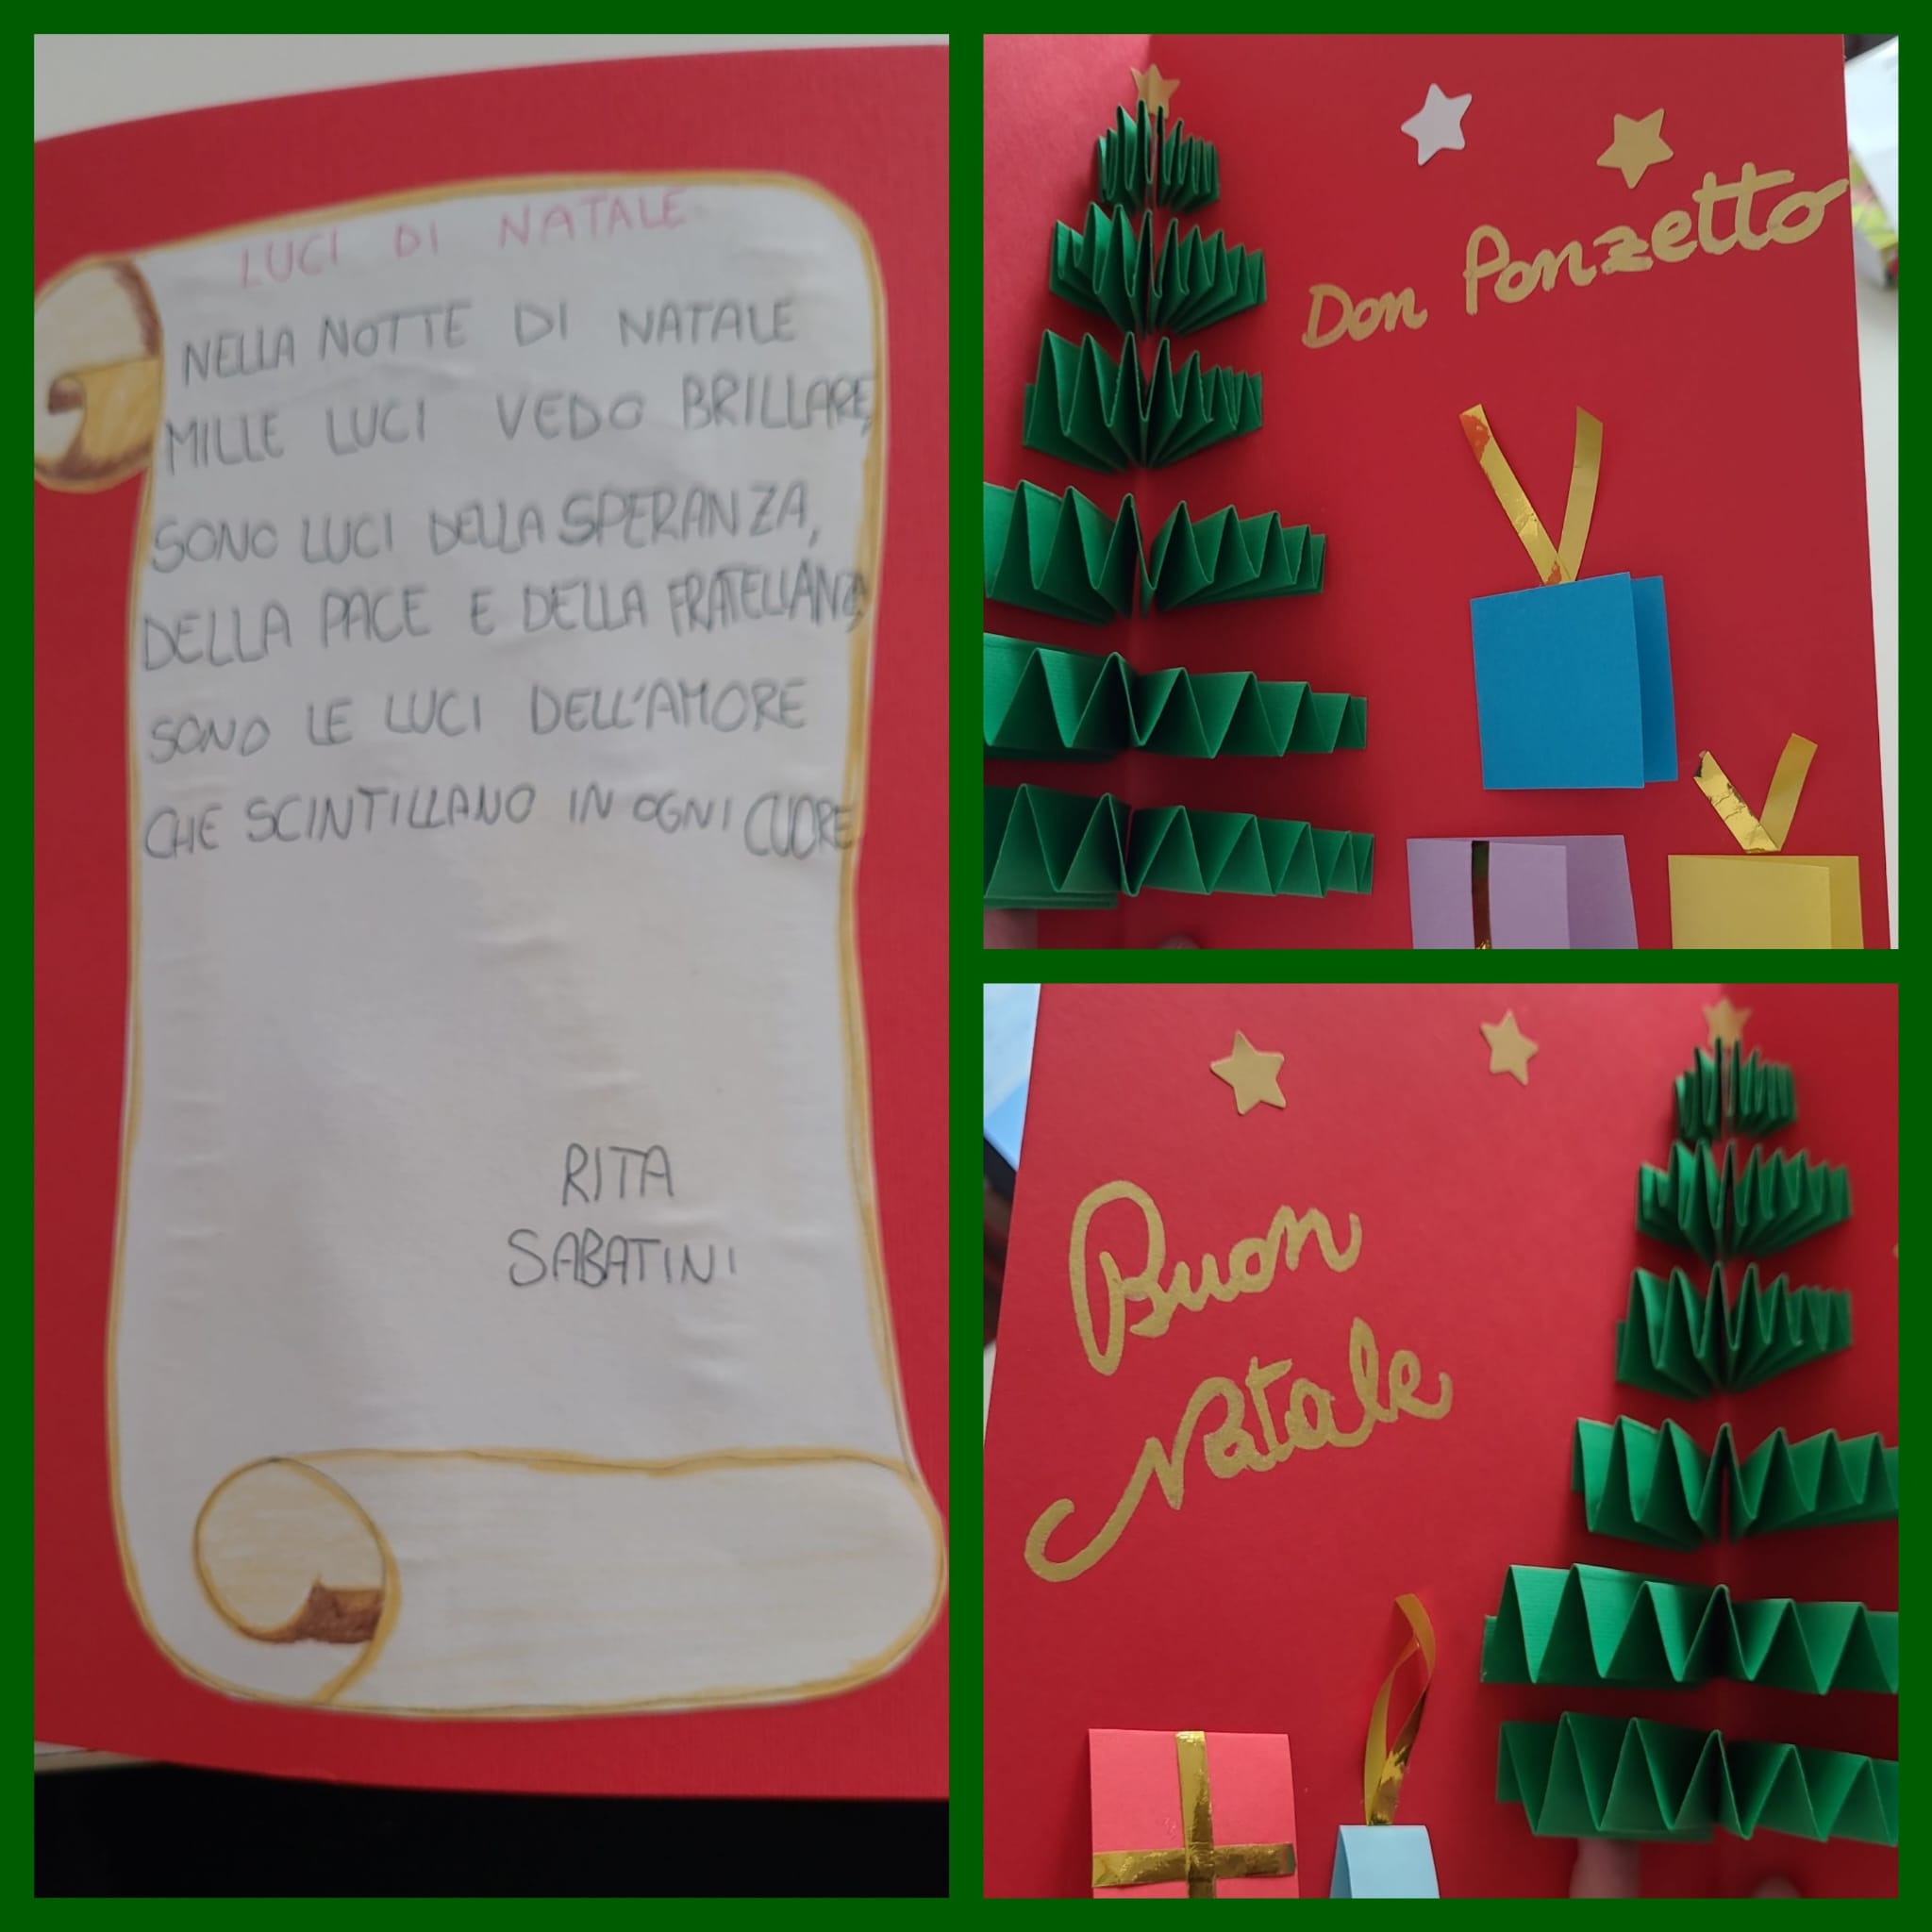 LUCI DI NATALE
NELLA NOTTE DI NATALE
MILLE LUCI VEDO BRILLARE,
SONO LUCI DELLA SPERANZA,
DELLA PACE E DELLA FRATELLANZA
SONO LE LUCI DELL'AMORE
CHE SCINTILLANO IN OGNI CUORE
RITA
SABATINI
Don Ponzetto
Buon
Natale